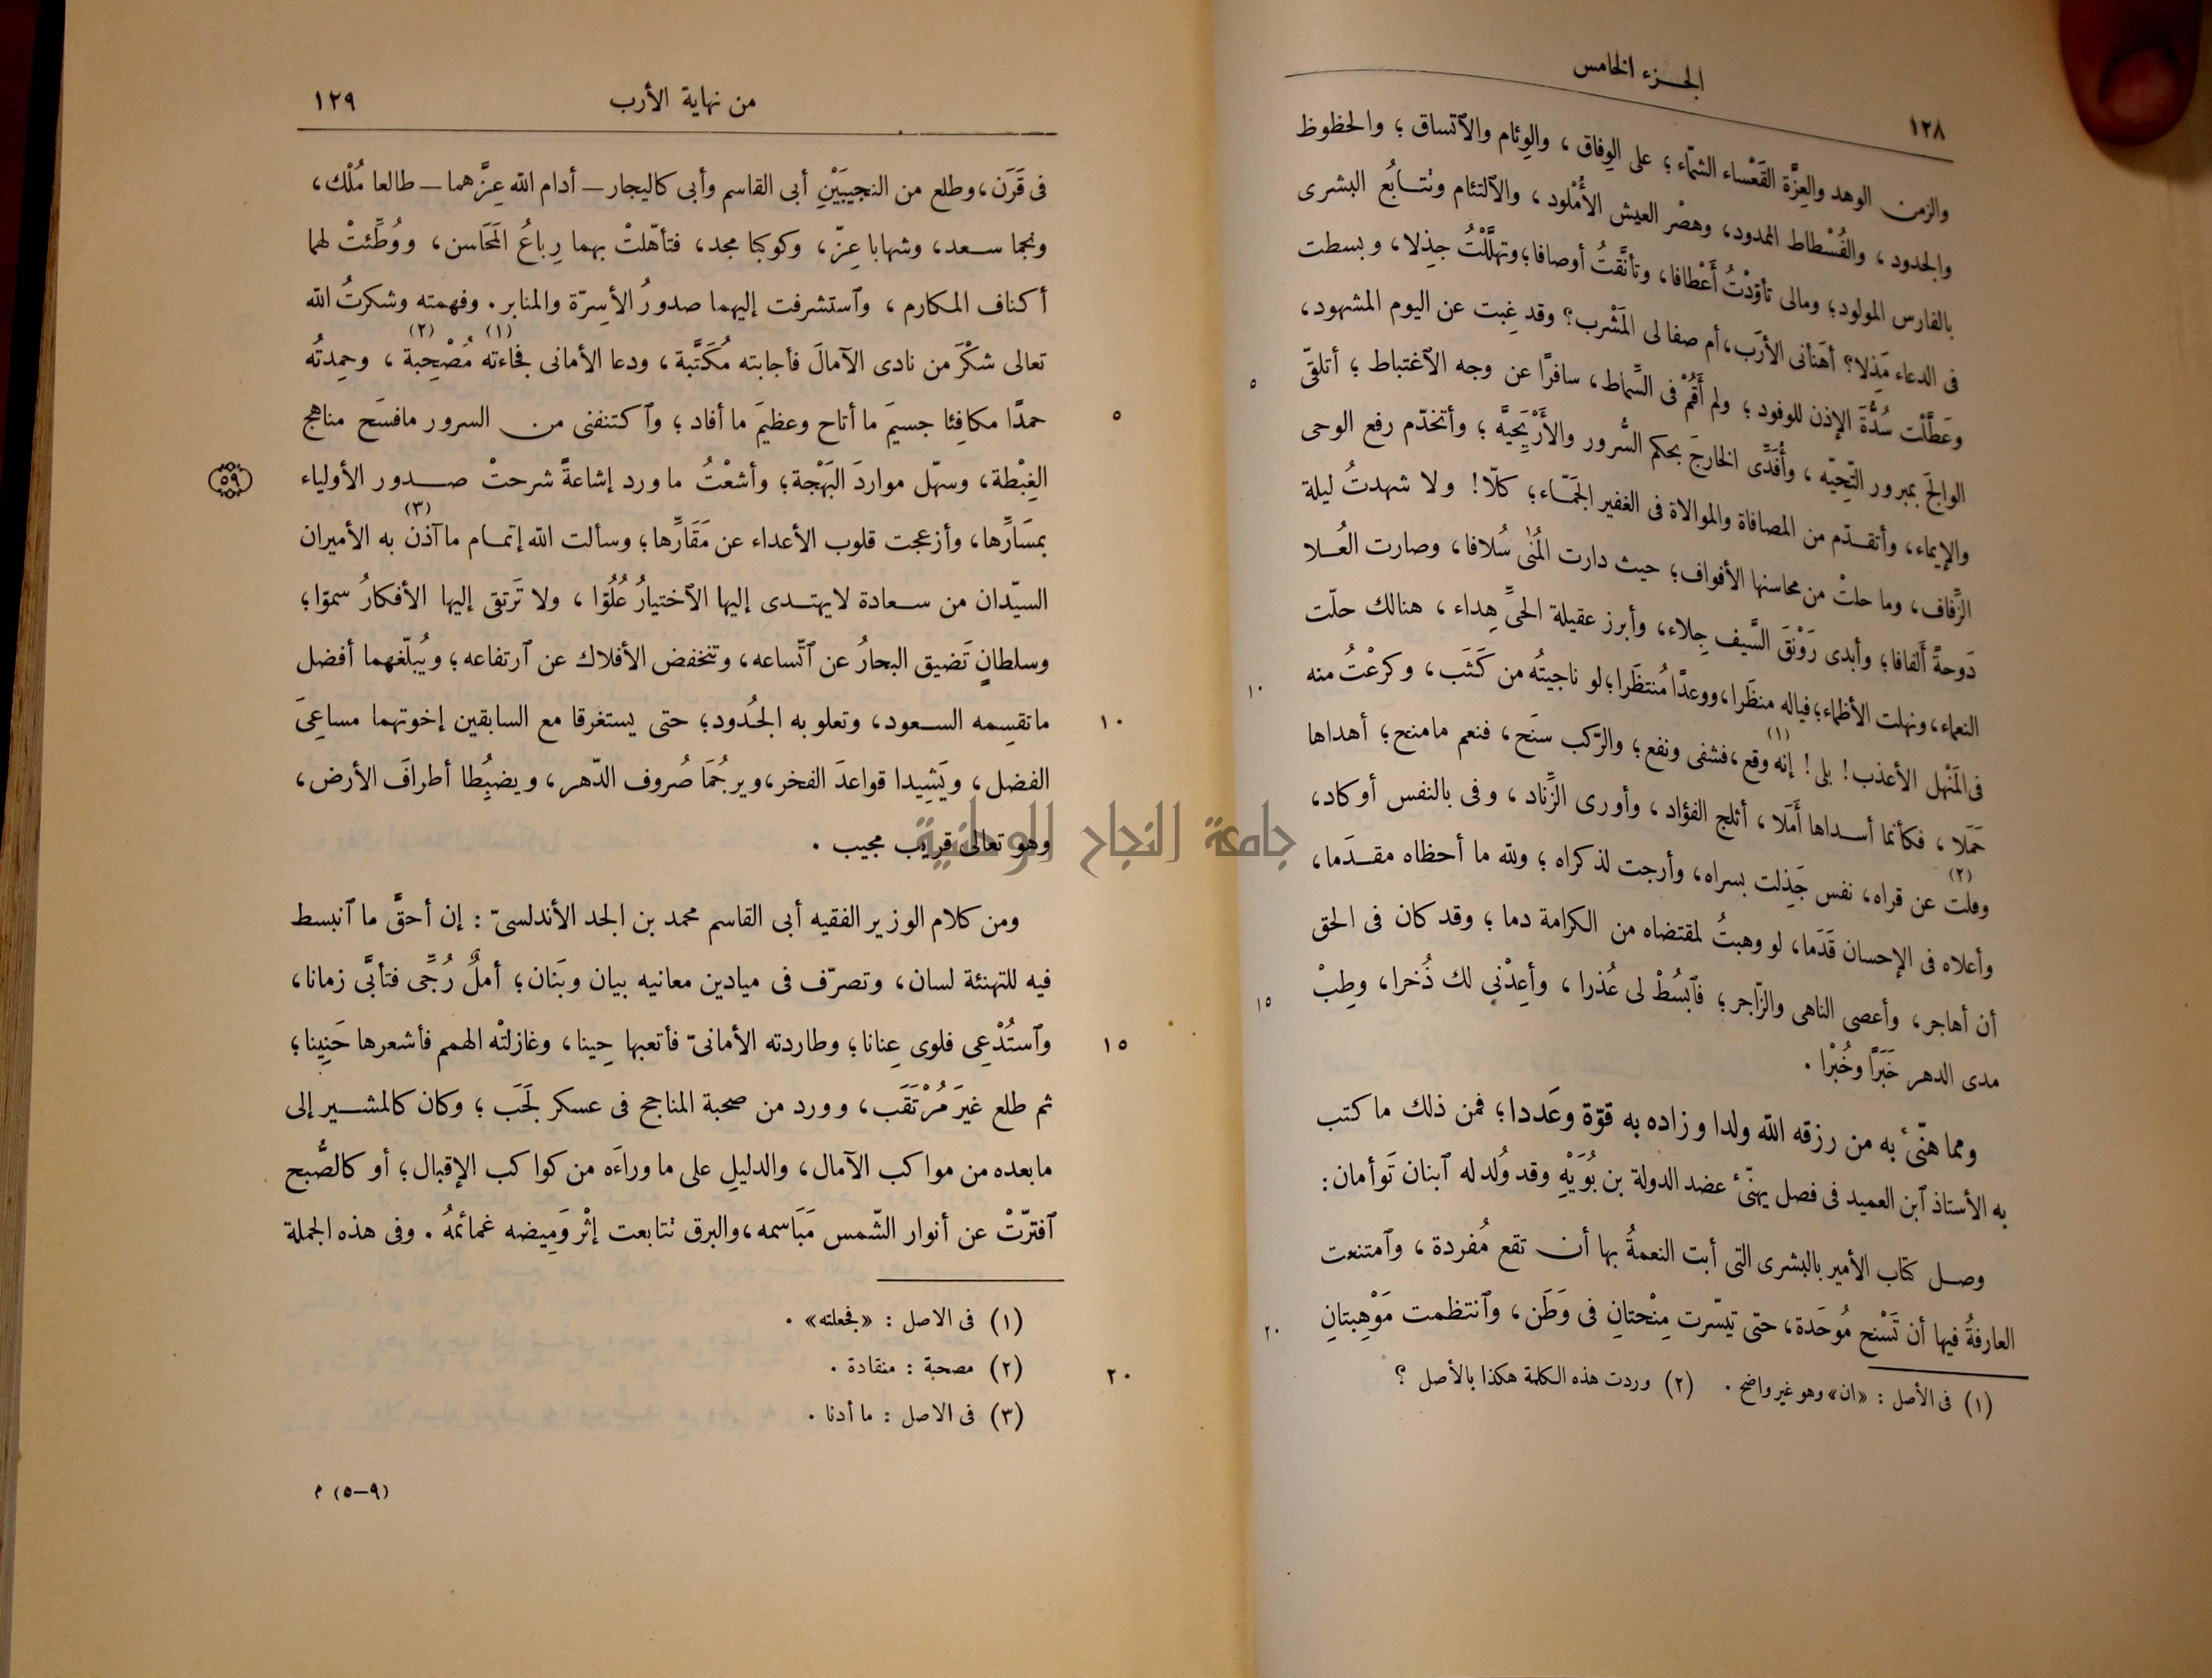 الجزء الخامس
١٢٨
والزمن الوهد والعِزَّة القَعْساء الشمّاء؛ على الوِفاق، والوِئام والاَتساق؛ والحظوظ
والجدود، والفُسْطاط الممدود، وهصْر العيش الأُمْلود، والاَلتئام وتتابُع البشرى
بالفارس المولود؛ ومالى تأوّدْتُ أَعْطافا، وتأنَّقتُ أوصافا؛ وتهلَّلْتُ جذِلا، وبسطت
فى الدعاء مَذِلا؟ أهَنأنى الأرَب، أم صفا لى المَشْرب؟ وقد غِبت عن اليوم المشهود،
وعَطَّلْت سُدَّةَ الإذن للوفود؛ ولم أَقُمْ فى السِّماط، سافرًا عن وجه الاَغتباط؛ أتلقّى
٥
الوالجَ بمبرور التّحِيّه، وأُفَدِّى الخارجَ بحكم السُّرور والأَرْيَحِيَّه؛ وأتخدّم رفع الوحى
والإيماء، وأتقدّم من المصافاة والموالاة فى الغفير الجَمّاء؛ كلّا! ولا شهدتُ ليلة
الزِّفاف، وما حلتْ من محاسنها الأفواف؛ حيث دارت المُنَى سُلافا، وصارت العُلا
دَوحةً ألفافا؛ وأبدى رَوْنَقَ السَّيف جِلاء، وأبرز عقيلة الحىِّ هِداء، هنالك حلّت
النعماء، ونهلت الأظماء؛ فياله منظَرا، ووعدًا مُنتظَرا؛ لو ناجيتُه من كَثَب، وكرعْتُ منه
١٠
فى المَنْهل الأعذب! بلى! إنه (١) وقع، فشفى ونفع؛ والرّكب سنَح، فنعم مامنح؛ أهداها
جَمَلا، فكأنما أسداها أَمَلا، أثلج الفؤاد، وأورى الزِّناد، وفى بالنفس أوكاد،
وفلت (٢) عن قراه، نفس جَذِلت بسراه، وأرجت لذكراه؛ ولله ما أحظاه مقدَما،
وأعلاه فى الإحسان قَدَما، لو وهبتُ لمقتضاه من الكرامة دما؛ وقد كان فى الحق
أن أهاجر، وأعصى الناهى والزّاجر؛ فاَبسُطْ لى عُذرا، وأعِدْنى لك ذُخرا، وطِبْ
١٥
مدى الدهر خَبَرًا وخُبْرا.
ومما هنّئ به من رزقه الله ولدا وزاده به قوّة وعَددا؛ فمن ذلك ما كتب
به الأستاذ اَبن العميد فى فصل يهنّئ عضد الدولة بن بُوَيْهِ وقد وُلد له اَبنان تَوأمان:
وصل كتاب الأمير بالبشرى التى أبت النعمةُ بها أن تقع مُفردة، واَمتنعت
العارفةُ فيها أن تَسْنح مُوحَدة، حتى تيسّرت مِنْحتانِ فى وَطَن، واَنتظمت مَوْهِبتانِ
٢٠
(١) فى الأصل: «ان» وهو غير واضح. (٢) وردت هذه الكلمة هكذا بالأصل ؟
من نهاية الأرب
١٢٩
فى قَرَن، وطلع من النجيبَيْنِ أبى القاسم وأبى كاليجار — أدام الله عِزَّهما — طالعا مُلْك،
ونجما سعد، وشهابا عِزّ، وكوكبا مجد، فتأهّلتْ بهما رِباعُ المَحَاسن، ووُطِّئتْ لهما
أكناف المكارم، واَستشرفت إليهما صدورُ الأسِرّة والمنابر. وفهمته وشكرتُ الله
تعالى شكْرَ من نادى الآمالَ فأجابته مُكَثَّبة، ودعا الأمانى فجاءته (١) مُصْحِبة (٢)، وحمِدتُه
حمدًا مكافِئا جسيمَ ما أتاح وعظيمَ ما أفاد؛ واَكتنفنى من السرور مافسَح مناهج
٥
الغِبْطة، وسهّل مواردَ البَهْجة؛ وأشعْتُ ما ورد إشاعةً شرحتْ صدور الأولياء
٥٩
بمسَارِّها، وأزعجت قلوب الأعداء عن مَقَارِّها؛ وسألت الله إتمام ما آذن (٣) به الأميران
السيّدان من سعادة لايهتدى إليها الاَختيارُ عُلُوّا، ولا تَرتقى إليها الأفكارُ سموّا؛
وسلطانٍ تَضيق البحارُ عن اَتّساعه، وتنخفض الأفلاك عن اَرتفاعه؛ ويُبلّغهما أفضل
ماتقسِمه السعود، وتعلو به الجُدود؛ حتى يستغرقا مع السابقين إخوتهما مساعِىَ
١٠
الفضل، ويَشِيدا قواعدَ الفخر، ويرجُمَا صُروف الدّهر، ويضبِطا أطرافَ الأرض،
وهو تعالى قريب مجيب.
جامعة النجاح الوطنية
ومن كلام الوزير الفقيه أبى القاسم محمد بن الجد الأندلسىّ: إن أحقَّ ما اَنبسط
فيه للتهنئة لسان، وتصرّف فى ميادين معانيه بيان وبَنان؛ أملٌ رُجِّى فتأبَّى زمانا،
واَستُدْعِى فلوى عِنانا؛ وطاردته الأمانىّ فأتعبها حِينا، وغازلتْه الهمم فأشعرها حَنِينا؛
١٥
ثم طلع غيرَ مُرْتَقَب، وورد من صحبة المناجح فى عسكر لَجَب؛ وكان كالمشير إلى
مابعده من مواكب الآمال، والدليلِ على ما وراءَه من كواكب الإقبال؛ أو كالصُّبح
اَفترّتْ عن أنوار الشّمس مَبَاسمه، والبرق تتابعت إثْر وَمِيضه غمائمهُ. وفى هذه الجملة
(١) فى الاصل: «فجعلته».
(٢) مصحبة: منقادة.
٢٠
(٣) فى الاصل: ما أدنا.
(٩-٥) م